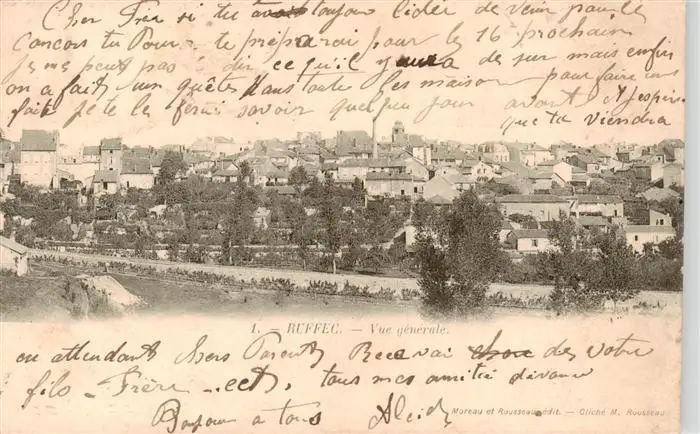 Cher Frè si tu as toujour l'idér de venir pour le
Concors tu Pour te préparai pour le 16 prochain
Je ne peus pas te dir ce qu'il y aura de sur mais enfin
on a fait un quêtes dans toute les maison pour faire une
fête je te le ferai savoir quelque jour avant J'espeis
que tu viendra
1. — RUFFEC. — Vue générale.
en attendant chers Parents Recevai des votre
filo Frère et, tous mes amitié dévance
Bonjour a tous Alcidy
Moreau et Rousseau, édit. — Cliché M. Rousseau